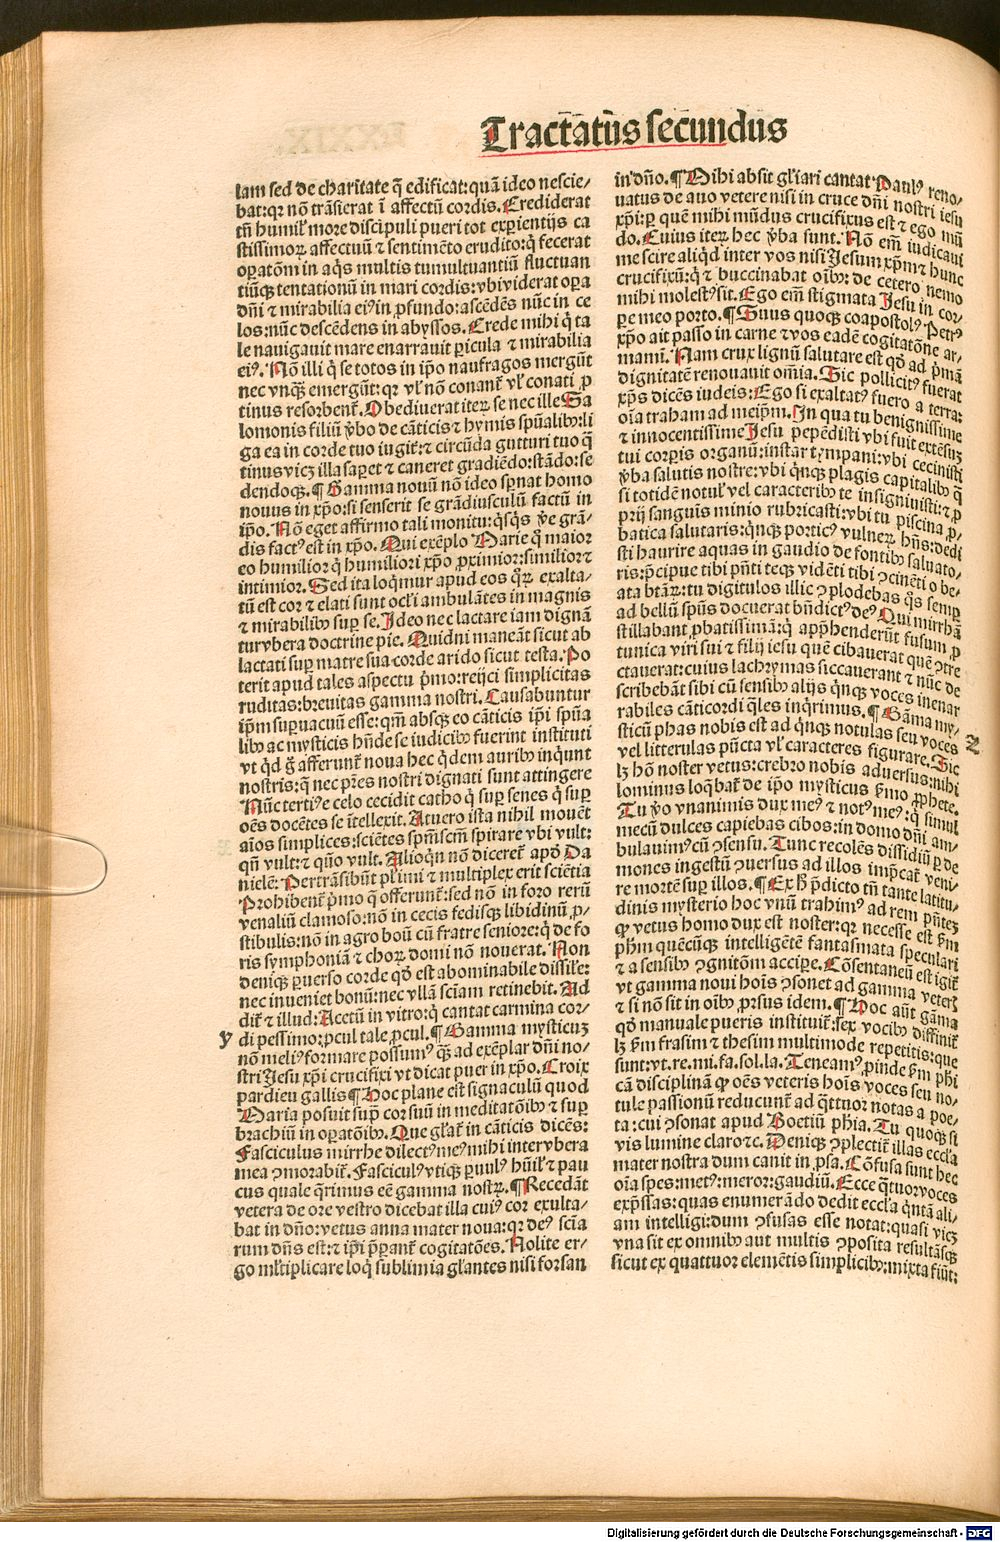 Tractatus secundus
lam sed de charitate q̄ edificat: quā ideo nescie/
bat: qꝛ nō trāsierat ī affectū cordis. Crediderat
tn̄ humil' more discipuli pueri tot experientijs ca
stissimoꝝ affectuū ⁊ sentimēto erudito: q̇ fecerat
oꝑatōm in aq̄s multis tumultuantiū fluctuan
tiūqꝫ tentationū in mari cordis: vbi viderat oꝑa
dn̄i ⁊ mirabilia eiꝰ in ꝓfundo: ascēdēs nūc in ce
los: nūc descēdens in abyssos. Crede mihi q̇ ta
le nauigauit mare enarrauit ꝑicula ⁊ mirabilia
eiꝰ. Nō illi q̇ se totos in ip̄o naufragos mergūt
nec vnqꝫ emergūt: qꝛ vl' nō conant̄ vl' conati ꝓ
tinus resorbent̄. Obediuerat iteꝝ se nec ille Sa
lomonis filiū ꝟbo de cāticis ⁊ hymis spūalibꝰ: li
ga ea in corde tuo iugit̄: ⁊ circūda gutturi tuo q̄
tinus vicꝫ illa saꝑet ⁊ caneret gradiēdo: stādo: se
dendoqꝫ. ¶ Gamma nouū nō ideo sꝑnat homo
nouus in xp̄o: si senserit se grādiusculū factū in
ip̄o. Nō eget affirmo tali monitu: q̇sq̇s ꝟe grā/
dis factꝰ est in xp̄o. Qui exēplo Marie q̄ maior
eo humilior q̇ humiliori xp̄o ꝓximior: similior ⁊
intimior. Sed ita loq̇mur apud eos q̇ꝝ exalta/
tū est cor ⁊ elati sunt ocl'i ambulātes in magnis
⁊ mirabilibꝰ suꝑ se. Ideo nec lactare iam dignā
tur vbera doctrine pie. Quidni maneāt sicut ab
lactati suꝑ matre sua corde arido sicut testa. Po
terit apud tales aspectu ṗmo: reijci simplicitas
ruditas: breuitas gamma nostri. Causabuntur
ip̄m suꝑuacuū esse: qm̄ absqꝫ eo cāticis ip̄i spūa
libꝰ ac mysticis hn̄de se iudicibꝰ fuerint instituti
vt q̇d g̊ afferunt̄ noua hec q̇dem auribꝰ inq̇unt
nostris: q̄ nec pr̄es nostri dignati sunt attingere
Nūc tertiꝰ e celo cecidit catho q̇ suꝑ senes q̇ suꝑ
oēs docētes se ītellexit. At uero ista nihil mouēt
aīos simplices: sciētes spm̄scm̄ spirare vbi vult:
qn̄ vult: ⁊ quō vult. Alioq̇n nō diceret̄ apd̄ Da
nielē: Pertrāsibūt pl'imi ⁊ multiplex erit sciētia
Prohibent̄ ṗmo q̇ offerunt̄: sed nō in foro rerū
venaliū clamoso: nō in cecis fedisqꝫ libidinū ꝓ/
stibulis: nō in agro boū cū fratre seniore: q̇ de fo
ris symphoniā ⁊ choꝝ domi nō nouerat. Non
deniqꝫ ꝑuerso corde qd̄ est abominabile dissil'e:
nec inueniet bonū: nec vllā sciam̄ retinebit. Ad
dit̄ ⁊ illud: Acetū in vitro: q̇ cantat carmina cor/
y di pessimo: ꝓcul tale ꝓcul. ¶ Gamma mysticuꝫ
nō meliꝰ formare possumꝰ qꝫ ad exēplar dn̄i no/
stri Jesu xp̄i crucifixi vt dicat puer in xp̄o. Croix
pardieu gallis ¶ Hoc plane est signaculū quod
Maria posuit suꝑ cor suū in meditatōibꝰ ⁊ suꝑ
brachiū in oꝑatōibꝰ. Que gl'at̄ in cāticis dicēs:
Fasciculus mirrhe dilectꝰ meꝰ mihi inter vbera
mea ꝯmorabit̄. Fasciculꝰ vtiqꝫ ꝑuulꝰ hūil' ⁊ pau
cus quale q̄rimus eē gamma nostꝝ. ¶ Recedāt
vetera de ore vestro dicebat illa cuiꝰ cor exulta/
bat in dn̄o: vetus anna mater noua: qꝛ deꝰ scīa
rum dn̄s est: ⁊ ip̄i p̄ꝑant̄ cogitatōes. Nolite er/
go ml'tiplicare loq̇ sublimia gl'antes nisi forsan
in dn̄o. ¶ Mihi absit gl'iari cantat Paulꝰ reno/
uatus de auo vetere nisi in cruce dn̄i nostri iesu
xp̄i: ꝑ quē mihi mūdus crucifixus est ⁊ ego mū
do. Cuius iteꝝ hec ꝟba sunt. Nō em̄ iudicaui
me scire aliq̇d inter vos nisi Jesum xp̄m ⁊ hunc
crucifixū: q̇ ⁊ buccinabat oībꝰ: de cetero nemo
mihi molestꝰ sit. Ego em̄ stigmata Jesu in cor/
ꝑe meo porto. ¶ Tuus quoqꝫ coapostolꝰ Petrꝰ
xp̄o ait passo in carne ⁊ vos eadē cogitatōne ar/
mami. Nam crux lignū salutare est qd̄ ad ṗmā
dignitatē renouauit omīa. Sic pollicitꝰ fuerat
xp̄s dicēs iudeis: Ego si exaltatꝰ fuero a terra:
oīa traham ad meip̄m. In qua tu benignissime
⁊ innocentissime Jesu pepēdisti vbi fuit extēsuꝫ
tui corꝑis organū: instar tympani: vbi cecinisti
ꝟba salutis nostre: vbi q̇nqꝫ plagis capitalibꝰ q̄
si totidē notul' vel caracteribꝰ te insigniuisti: ⁊ ꝓ
prij sanguis minio rubricasti: vbi tu piscina ꝓ/
batica salutaris: q̇nqꝫ porticꝰ vulneꝝ hn̄s: dedi
sti haurire aquas in gaudio de fontibꝰ saluato/
ris: p̄cipue tibi pn̄ti teqꝫ vidēti tibi ꝯcinēti o be/
ata btāꝝ: tu digitulos illic ꝯplodebas q̇s semꝑ
ad bellū spūs docuerat bn̄dictꝰ deꝰ Qui mirrhā
stillabant ꝓbatissimā: q̇ app̄henderūt fusum ꝓ
tunica viri sui ⁊ filij iesu quē cibauerat quē ꝯtre
ctauerat: cuius lachrymas siccauerant ⁊ nūc de
scribebāt sibi cū sensibꝰ alijs q̇nqꝫ voces inenar
rabiles cāticordi q̄les inq̇rimus. ¶ Gāma my/
sticū phas nobis est ad q̇nqꝫ notulas seu voces z
vel litterulas pūcta vl' caracteres figurare. Sic
lꝫ hō noster vetus: crebro nobis aduersus: nihi
lominus loq̇bat̄ de ip̄o mysticus ẜmo ꝓphete.
Tu ꝟo vnanimis dux meꝰ ⁊ notꝰ meꝰ: q̇ simul
mecū dulces capiebas cibos: in domo dn̄i am/
bulauimꝰ cū ꝯsensu. Tunc recolēs dissidiū ꝑ de
mones ingestū ꝯuersus ad illos imp̄cat̄ veni/
re mortē suꝑ illos. ¶ Ex h̄ p̄dicto tn̄ tante latitu/
dinis mysterio hoc vnū trahimꝰ ad rem pn̄teꝫ
ꝙ vetus homo dux est noster: qꝛ necesse est ẜm
ph̄m quēcūqꝫ intelligētē fantasmata speculari
⁊ a sensibꝰ ꝯgnitōm acciꝑe. Cōsentaneū est igit̄
vt gamma noui hoīs ꝯsonet ad gamma veterꝫ
⁊ si nō sit in oībꝰ ꝓrsus idem. ¶ Hoc aūt gāma
qd̄ manuale pueris instituit̄: sex vocibꝰ diffinit̄
lꝫ ẜm frasim ⁊ thesim multimode repetitis: que
sunt: vt. re. mi. fa. sol. la. Teneamꝰ ꝓinde ẜm phi
cā disciplinā ꝙ oēs veteris hoīs voces seu no/
tule passionū reducunt̄ ad q̇ttuor notas a poe/
ta: cui ꝯsonat apud Boetiū ph̄ia. Tu quoqꝫ si
vis lumine claro ⁊c. Deniqꝫ ꝯplectit̄ illas eccl'a
mater nostra dum canit in ꝓsa. Cōfusa sunt hec
oīa spes: metꝰ: meror: gaudiū. Ecce q̇tuor voces
exp̄ssas: quas enumerādo dedit eccl'a q̇ntā ali/
am intelligi: dum ꝯfusas esse notat: quasi vicꝫ
vna sit ex omnibꝰ aut multis ꝯposita resultāsqꝫ
sicut ex quattuor elemētis simplicibꝰ: mixta fiūt:
Digitalisierung gefördert durch die Deutsche Forschungsgemeinschaft - DFG